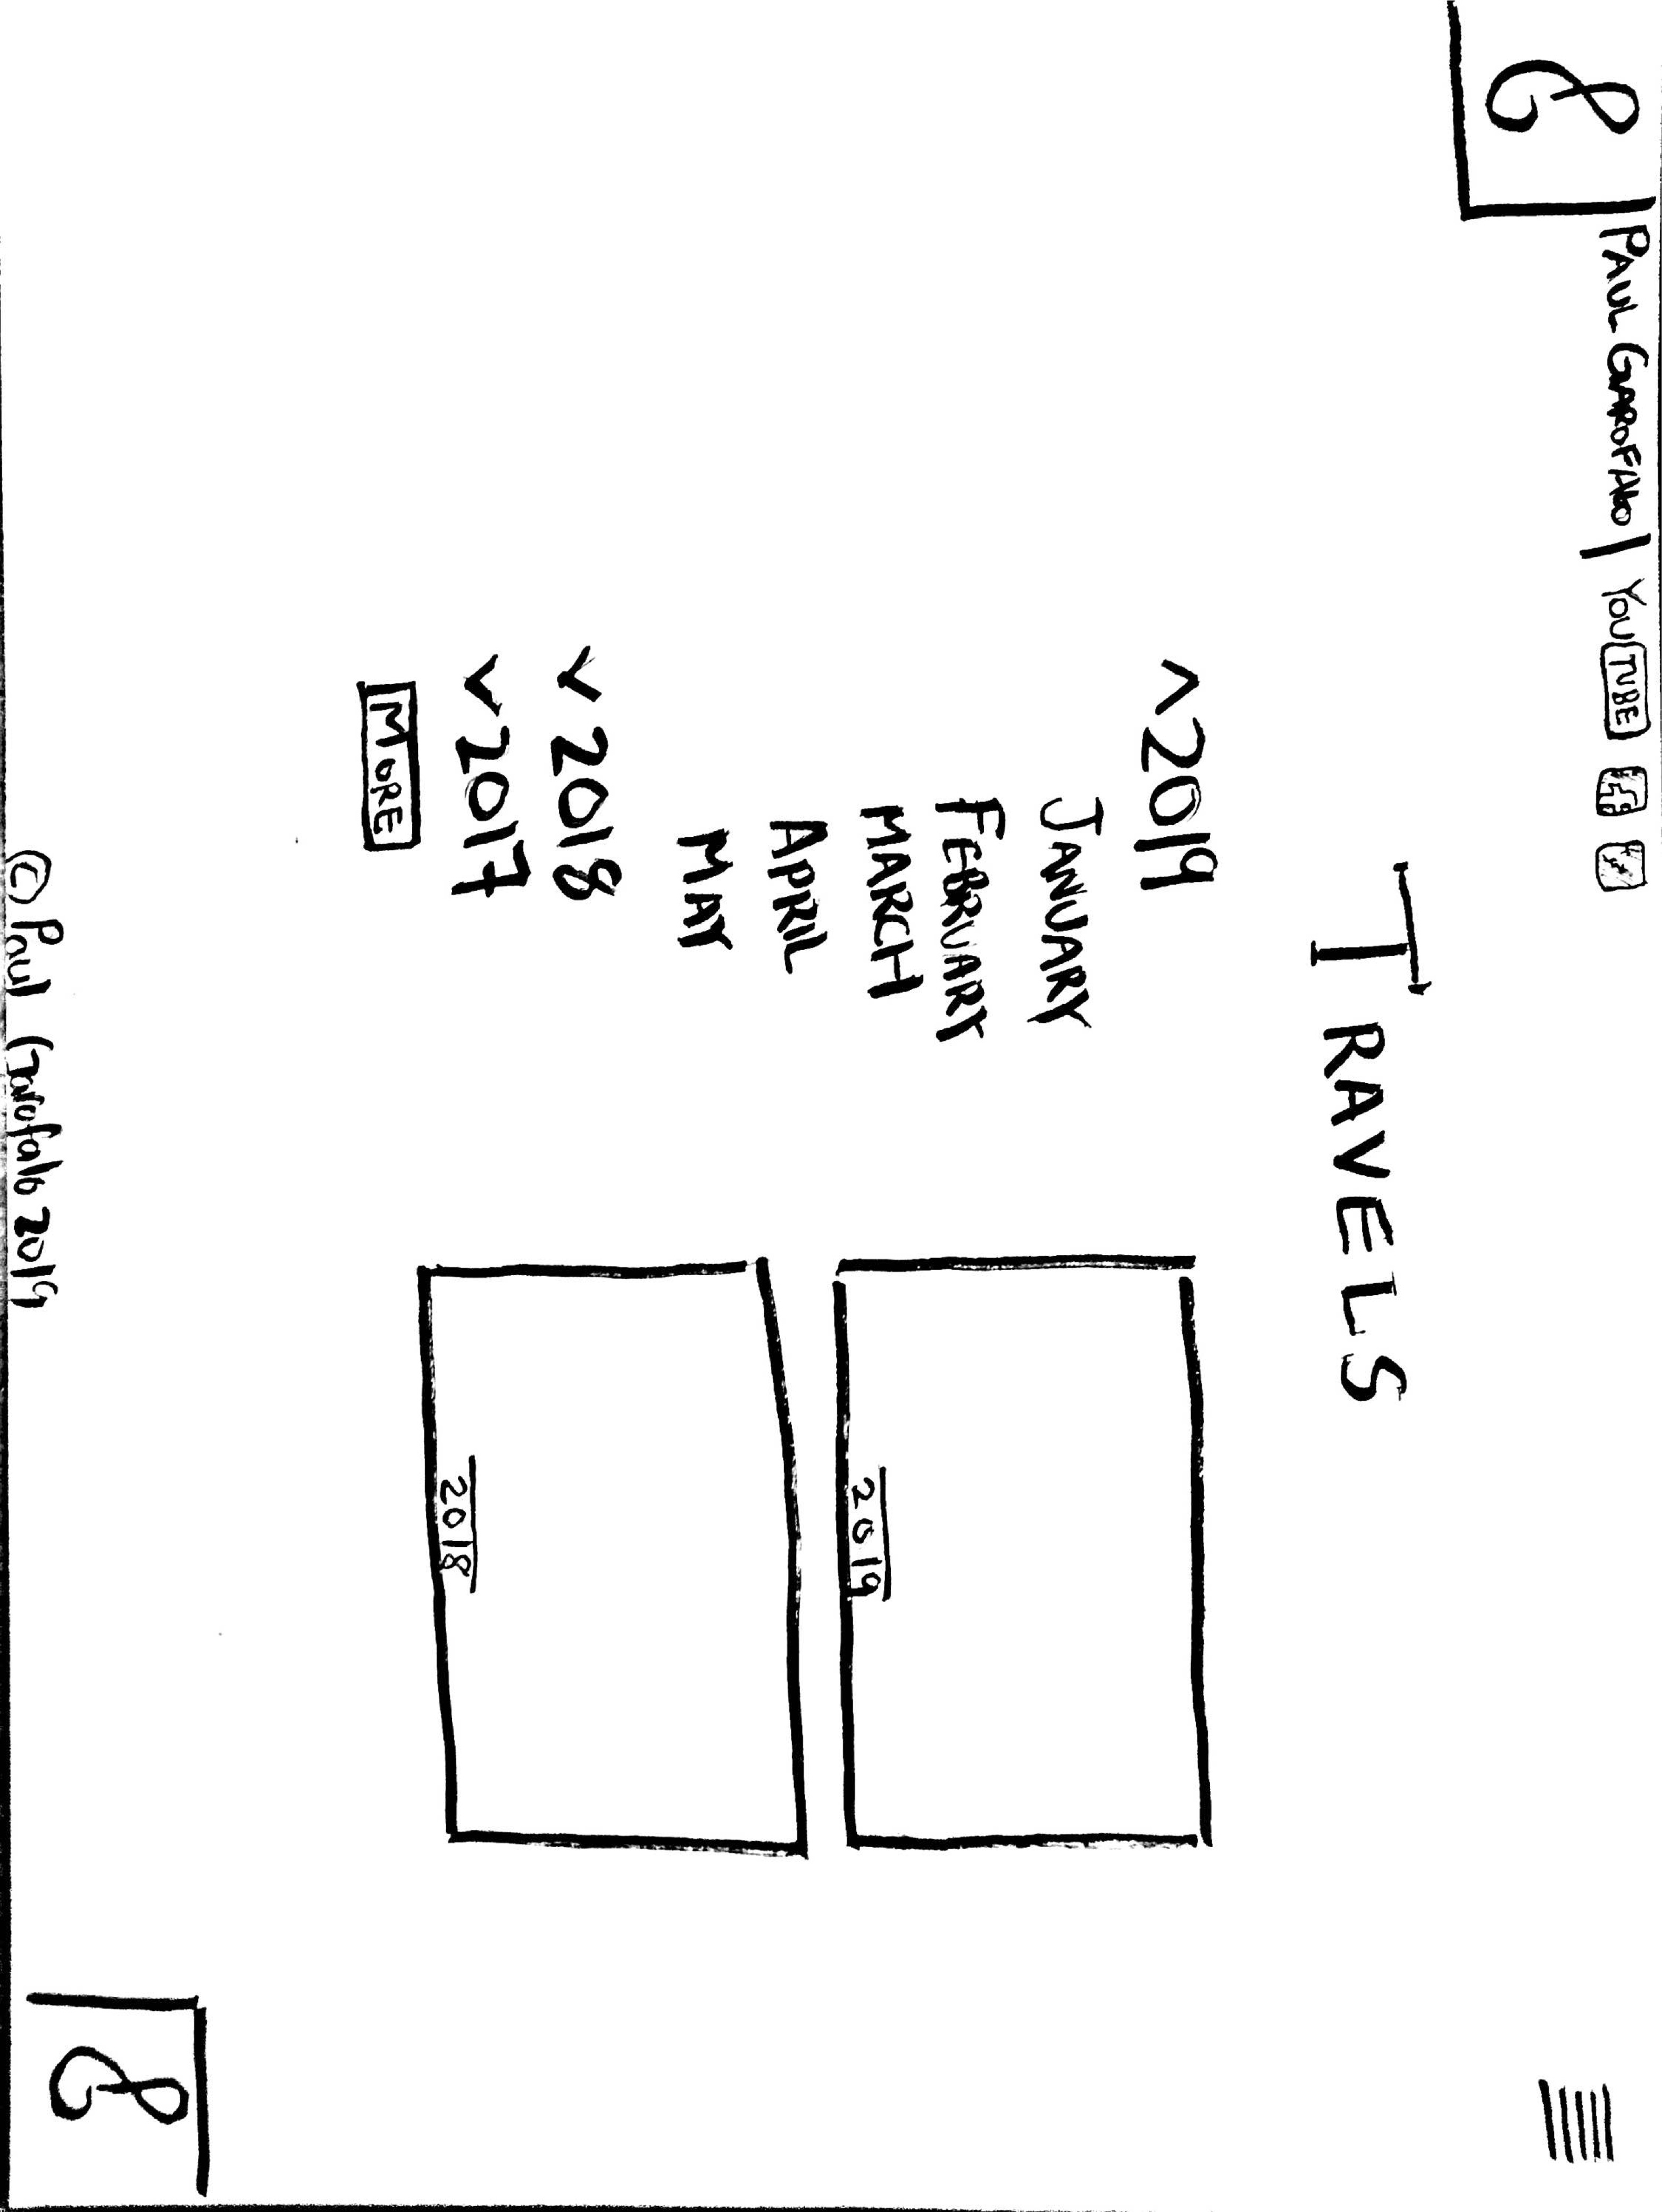 PAUL GAROFALO | YOUTUBE
TRAVELS
^ 2019
JANUARY
FEBRUARY
MARCH
APRIL
MAY
v 2018
v 2017
MORE
2019
2018
© Paul Garofalo 2019